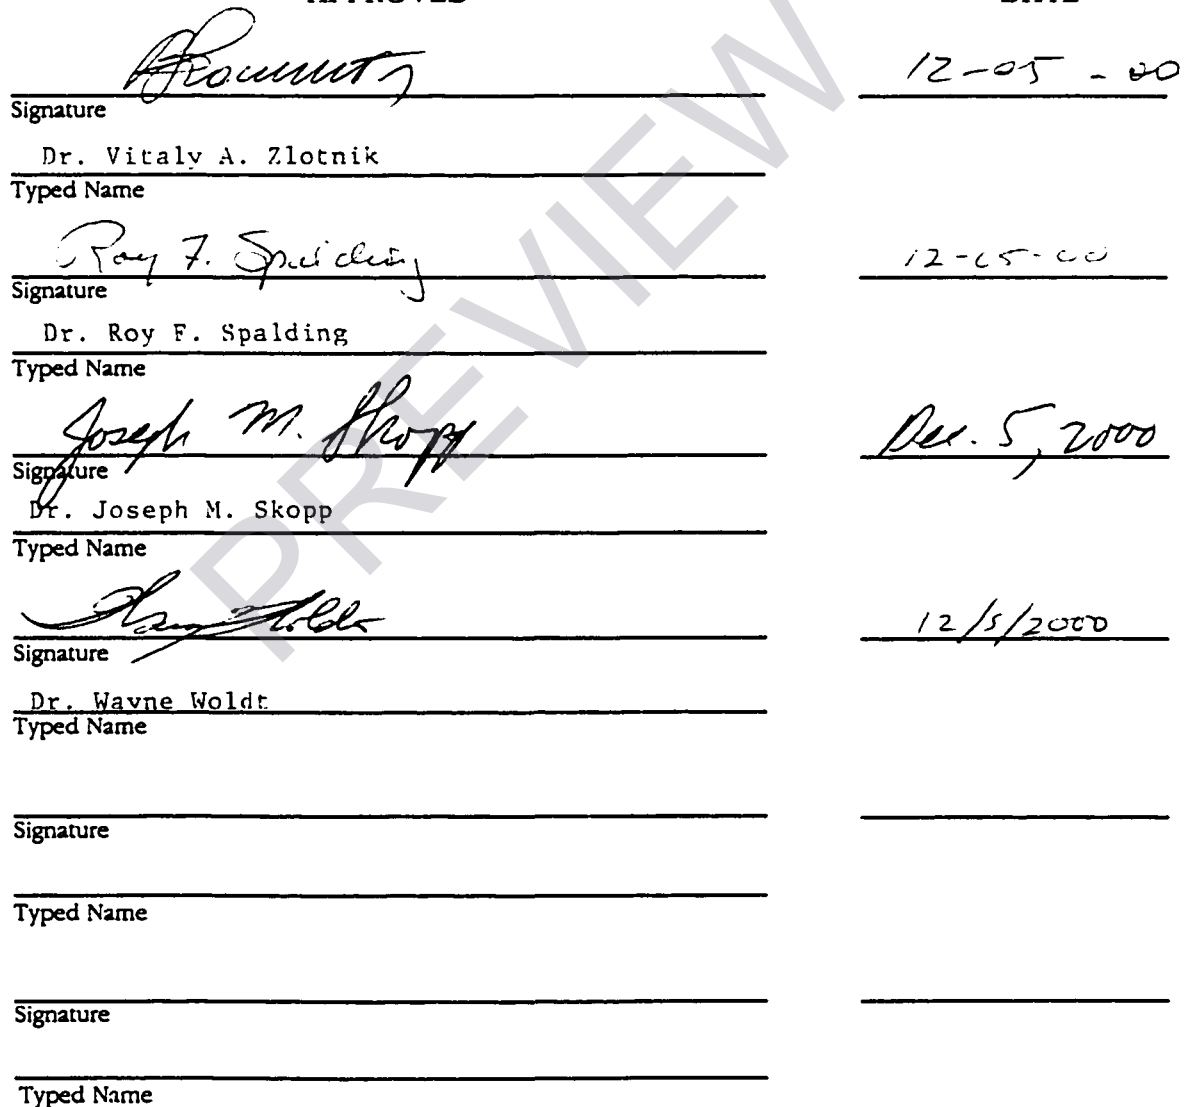 APPROVED DATE
12-05-00
Signature
Dr. Vitaly A. Zlotnik
Typed Name
Roy F. Spalding 12-05-00
Signature
Dr. Roy F. Spalding
Typed Name
Joseph M. Skopp Dec. 5, 2000
Signature
Dr. Joseph M. Skopp
Typed Name
Wayne Woldt 12/5/2000
Signature
Dr. Wayne Woldt
Typed Name
Signature
Typed Name
Signature
Typed Name
PREVIEW